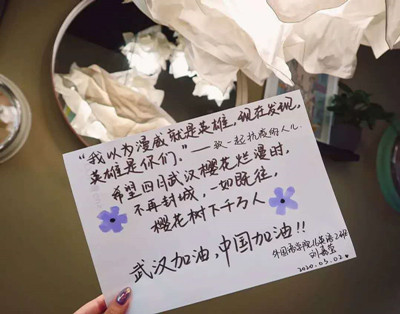 “我以为漫威就是英雄，现在发现，
英雄是你们。”——致一起抗疫的人儿.
希望四月武汉樱花烂漫时，
不再封城，一如既往，
樱花树下千万人
武汉加油，中国加油!!
外国语学院儿英语2班
2020.03.02